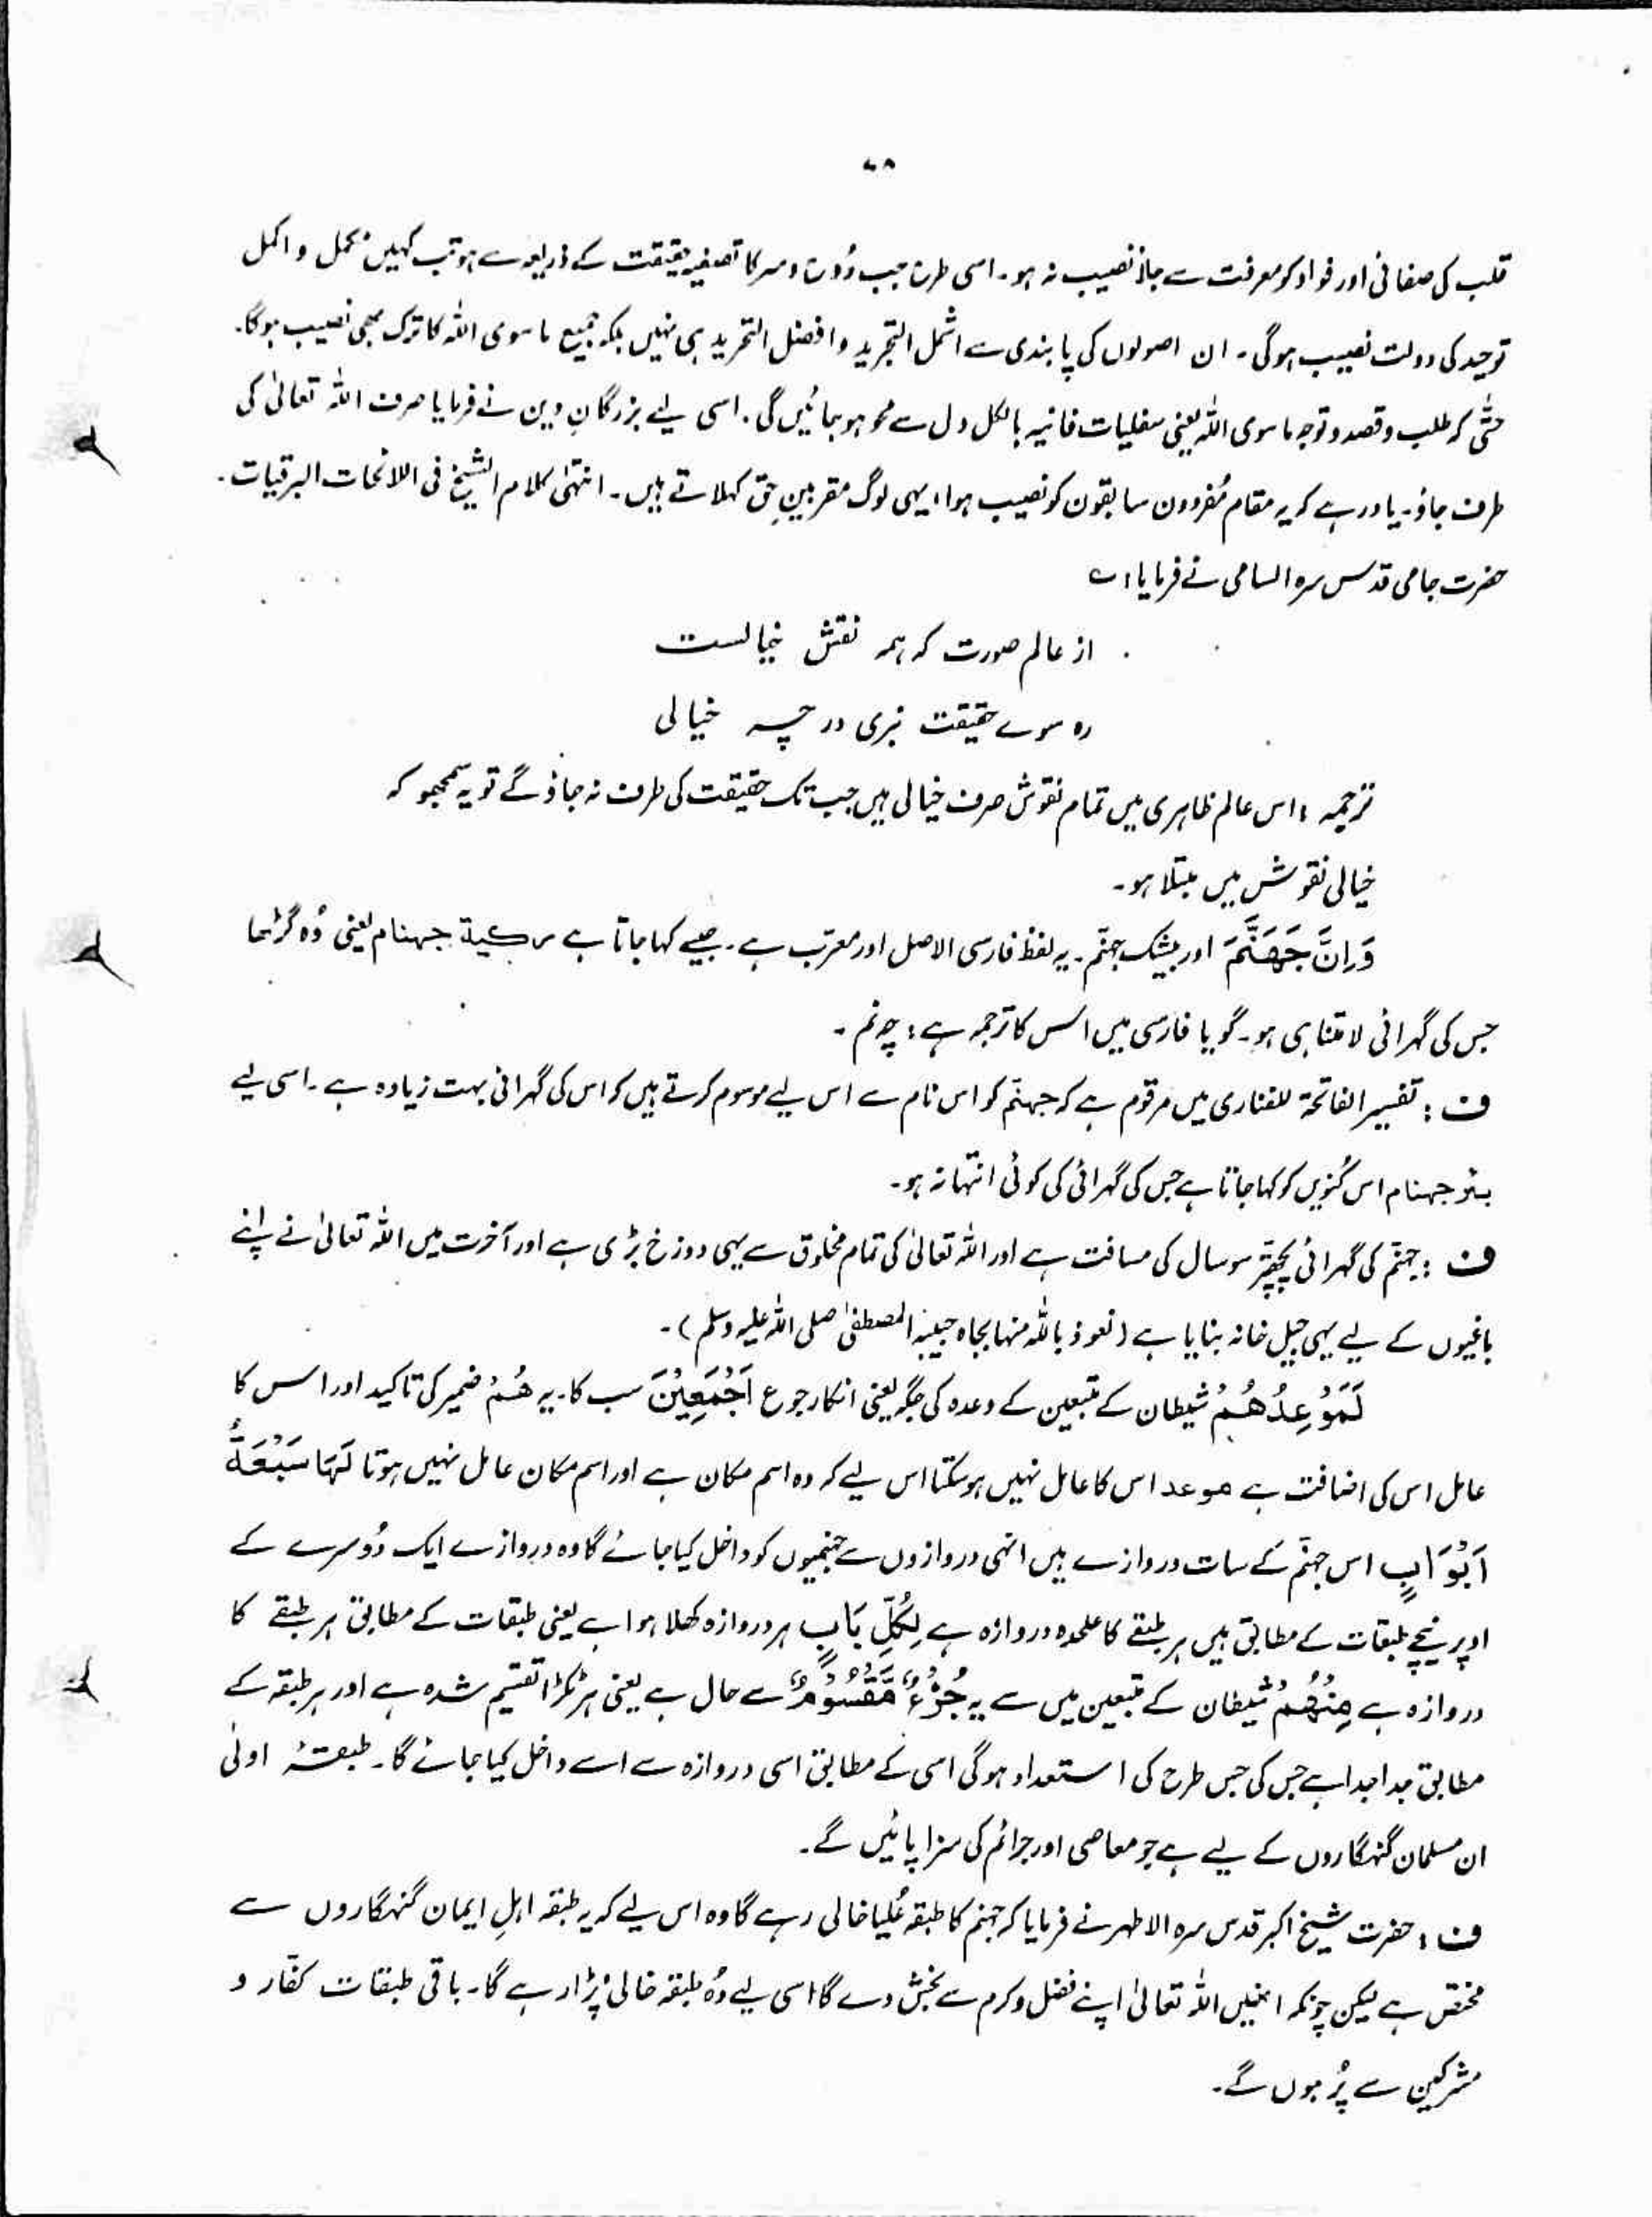 ۷۸
قلب کی صفائی اور فواد کو معرفت سے جلاء نصیب نہ ہو۔ اسی طرح جب رُوح و سر کا تصفیہ حقیقت کے ذریعہ سے ہو تب کہیں مکمل و اکمل
توحید کی دولت نصیب ہوگی۔ ان اصولوں کی پابندی سے اشمل التجرید و افضل التفرید ہی نہیں بلکہ جمیع ماسوی اللہ کا ترک بھی نصیب ہوگا۔
حتّٰی کہ طلب و قصد و توجہ ماسوی اللہ یعنی سفلیات فانیہ بالکل دل سے محو ہو جائیں گی۔ اسی لیے بزرگانِ دین نے فرمایا صرف اللہ تعالیٰ کی
طرف جاؤ۔ یاد رہے کہ یہ مقام مُفردون سابقون کو نصیب ہوا، یہی لوگ مقربینِ حق کہلاتے ہیں۔ انتہٰی کلام الشیخ فی اللائحات البرقیات۔
حضرت جامی قدس سرہ السامی نے فرمایا: ؎
از عالم صورت کہ ہمہ نقش خیالست
رہ سوے حقیقت نبری در چہ خیالی
ترجمہ: اس عالم ظاہری میں تمام نقوش صرف خیالی ہیں جب تک حقیقت کی طرف نہ جاؤ گے تو یہ سمجھو کہ
خیالی نقوش میں مبتلا ہو۔
وَاِنَّ جَهَنَّمَ اور بیشک جہنّم۔ یہ لفظ فارسی الاصل اور معرّب ہے۔ جیسے کہا جاتا ہے رکیۃ جہنام یعنی وُہ گڑھا
جس کی گہرائی لامتناہی ہو۔ گویا فارسی میں اس کا ترجمہ ہے: چہ نم۔
ف: تفسیر الفاتحۃ للفناری میں مرقوم ہے کہ جہنّم کو اس نام سے اس لیے موسوم کرتے ہیں کہ اس کی گہرائی بہت زیادہ ہے۔ اسی لیے
بئر جہنام اس کُنویں کو کہا جاتا ہے جس کی گہرائی کی کوئی انتہا نہ ہو۔
ف: جہنّم کی گہرائی پچھتّر سو سال کی مسافت ہے اور اللہ تعالیٰ کی تمام مخلوق سے یہی دوزخ بڑی ہے اور آخرت میں اللہ تعالیٰ نے اپنے
باغیوں کے لیے یہی جیل خانہ بنایا ہے (نعوذ باللہ منہا بجاہ حبیبہ المصطفیٰ صلی اللہ علیہ وسلم)۔
لَمَوْعِدُهُمْ شیطان کے متبعین کے وعدہ کی جگہ یعنی انکا رجوع اَجْمَعِیْنَ سب کا۔ یہ هُمْ ضمیر کی تاکید اور اس کا
عامل اس کی اضافت ہے موعد اس کا عامل نہیں ہو سکتا اس لیے کہ وہ اسم مکان ہے اور اسم مکان عامل نہیں ہوتا لَهَا سَبْعَةُ
اَبْوَابٍ اس جہنّم کے سات دروازے ہیں انہی دروازوں سے جہنمیوں کو داخل کیا جائے گا وہ دروازے ایک دُوسرے کے
اوپر نیچے طبقات کے مطابق ہیں ہر طبقے کا علیحدہ دروازہ ہے لِكُلِّ بَابٍ ہر دروازہ کھلا ہوا ہے یعنی طبقات کے مطابق ہر طبقے کا
دروازہ ہے مِنْهُمْ شیطان کے متبعین میں سے یہ جُزْءٌ مَّقْسُوْمٌ سے حال ہے یعنی ہر ٹکڑا تقسیم شدہ ہے اور ہر طبقہ کے
مطابق جدا جدا ہے جس کی جس طرح کی استعداد ہوگی اسی کے مطابق اسی دروازہ سے اسے داخل کیا جائے گا۔ طبقۂ اولیٰ
ان مسلمان گنہگاروں کے لیے ہے جو معاصی اور جرائم کی سزا پائیں گے۔
ف: حضرت شیخ اکبر قدس سرہ الاطہر نے فرمایا کہ جہنم کا طبقہ عُلیا خالی رہے گا وہ اس لیے کہ یہ طبقہ اہلِ ایمان گنہگاروں سے
مختص ہے لیکن چونکہ انہیں اللہ تعالیٰ اپنے فضل و کرم سے بخش دے گا اسی لیے وُہ طبقہ خالی پڑا رہے گا۔ باقی طبقات کفّار و
مشرکین سے پُر ہوں گے۔